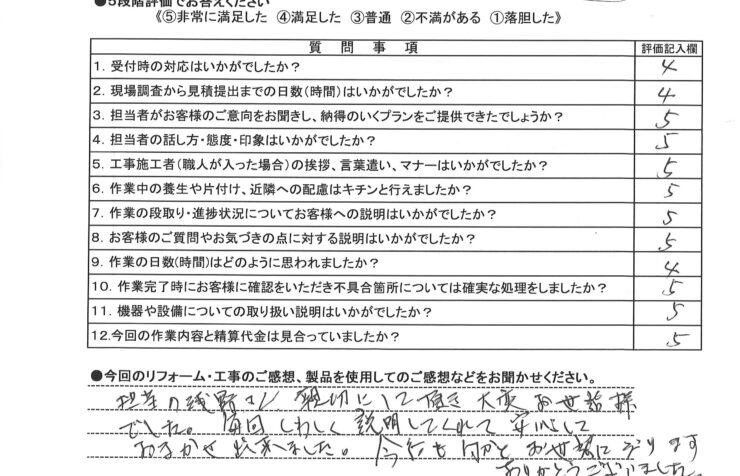 ●5段階評価でお答えください
《⑤非常に満足した ④満足した ③普通 ②不満がある ①落胆した》
質問事項 評価記入欄
1. 受付時の対応はいかがでしたか？ 4
2. 現場調査から見積提出までの日数(時間)はいかがでしたか？ 4
3. 担当者がお客様のご意向をお聞きし、納得のいくプランをご提供できたでしょうか？ 5
4. 担当者の話し方・態度・印象はいかがでしたか？ 5
5. 工事施工者(職人が入った場合)の挨拶、言葉遣い、マナーはいかがでしたか？ 5
6. 作業中の養生や片付け、近隣への配慮はキチンと行えましたか？ 5
7. 作業の段取り・進捗状況についてお客様への説明はいかがでしたか？ 5
8. お客様のご質問やお気づきの点に対する説明はいかがでしたか？ 5
9. 作業の日数(時間)はどのように思われましたか？ 4
10. 作業完了時にお客様に確認をいただき不具合箇所については確実な処理をしましたか？ 5
11. 機器や設備についての取り扱い説明はいかがでしたか？ 5
12.今回の作業内容と精算代金は見合っていましたか？ 5
●今回のリフォーム・工事のご感想、製品を使用してのご感想などをお聞かせください。
担当の浅野さん 親切にして頂き 大変お世話様
でした。毎回 くわしく 説明してくれて 安心して
おまかせ出来ました。今後も何かとお世話になります
ありがとうございました。